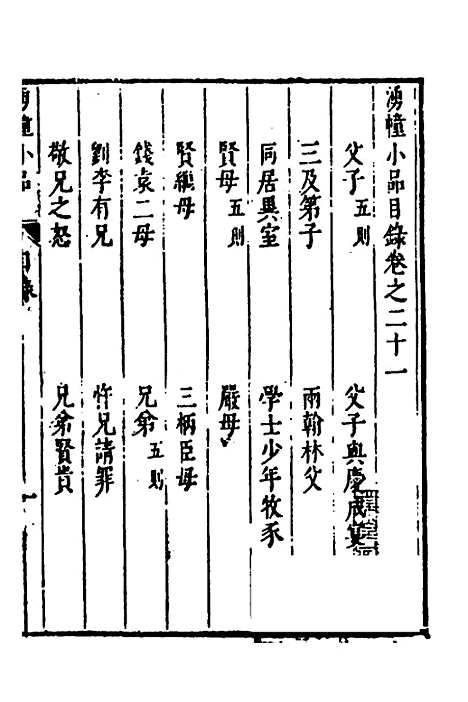 湧幢小品目錄卷之二十一
父子五則　父子與慶成宴
三及第子　兩翰林父
同居異室　學士少年牧豕
賢母五則　嚴母
賢繼母　三柄臣母
錢袁二母　兄弟五則
劉李有兄　忤兄請罪
敬兄之恕　兄弟賢貴
湧幢小品　目錄　一